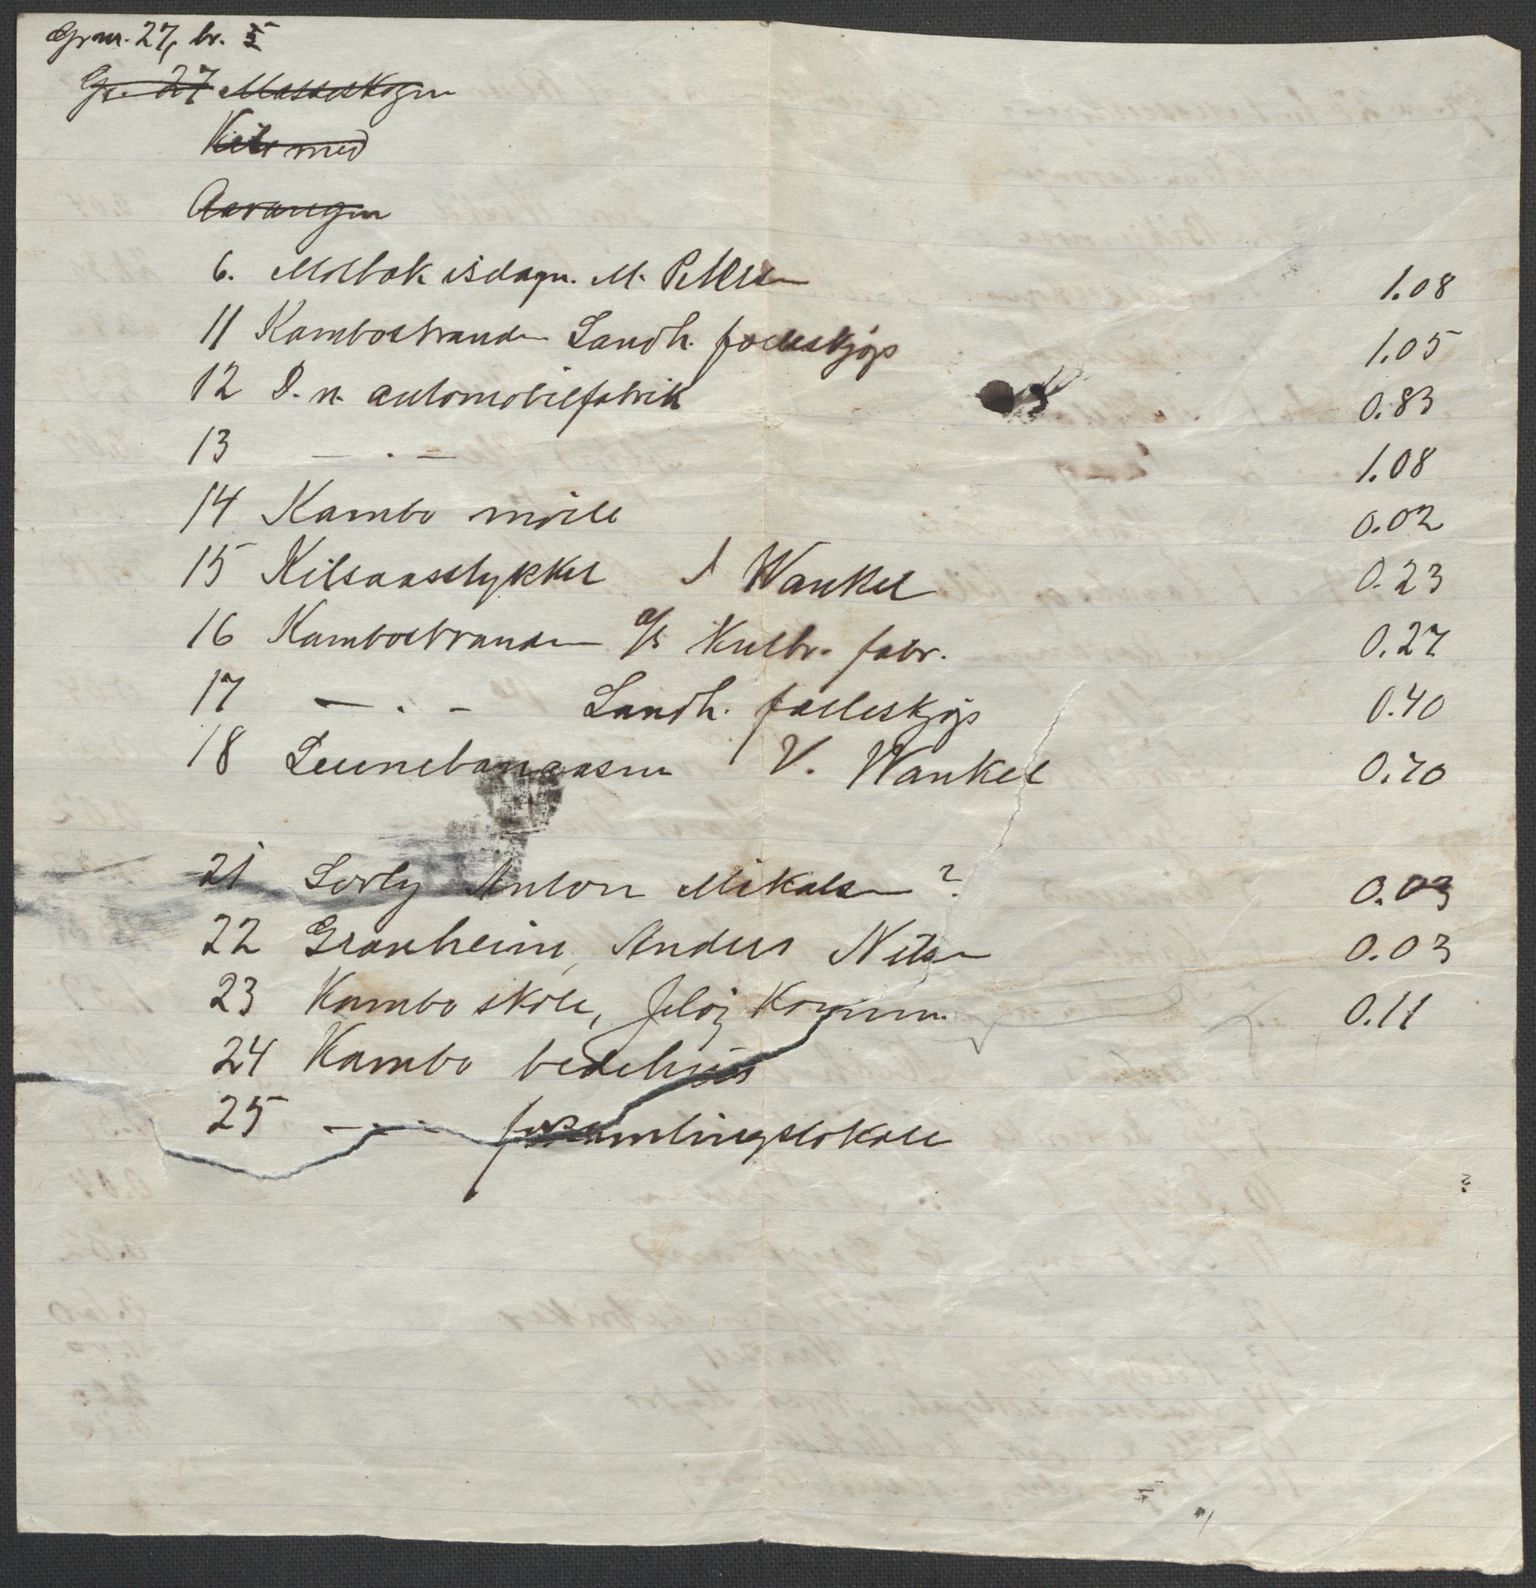 Grnr. 27, br. 5
Gr. 27 Mosseskogen
Kile med
Aavangen
6. Molbak isdagn. M. Petersen 1.08
11 Kambostranden Landh. fælleskjøp 1.05
12 D. n. automobilfabrik 0.83
13 — . — 1.08
14 Kambo mølle 0.02
15 Kilsaasstykket J Wankel 0.23
16 Kambostranden a/s Kulbr. fabr. 0.27
17 — . — Landh. fælleskjøp 0.40
18 V. Wankel 0.70
21 Sorly Anton Mikalsen ? 0.03
22 Granheim, Anders Nilsen 0.03
23 Kambo skole, Jeløy Komm. 0.11
24 Kambo bedehus
25 — . — forsamlingslokale